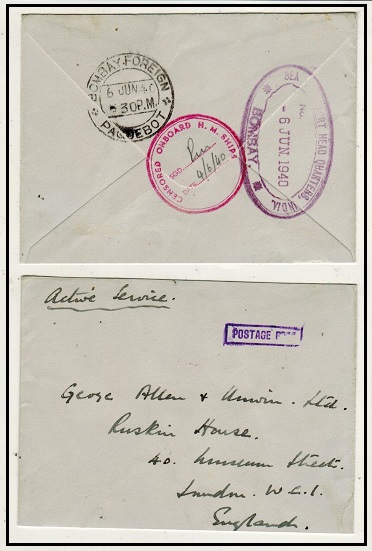 BOMBAY FOREIGN
6 JUN 40
5 30 P.M.
PAQUEBOT
CENSORED ONBOARD H. M. SHIPS
SGD.
DATE 4/6/40
SEA HEAD QUARTERS, INDIA.
- 6 JUN. 1940
BOMBAY
Active Service.
POSTAGE
George Allen & Unwin. Ltd.
Ruskin House.
40. Museum Street.
London. W.C.1.
England.